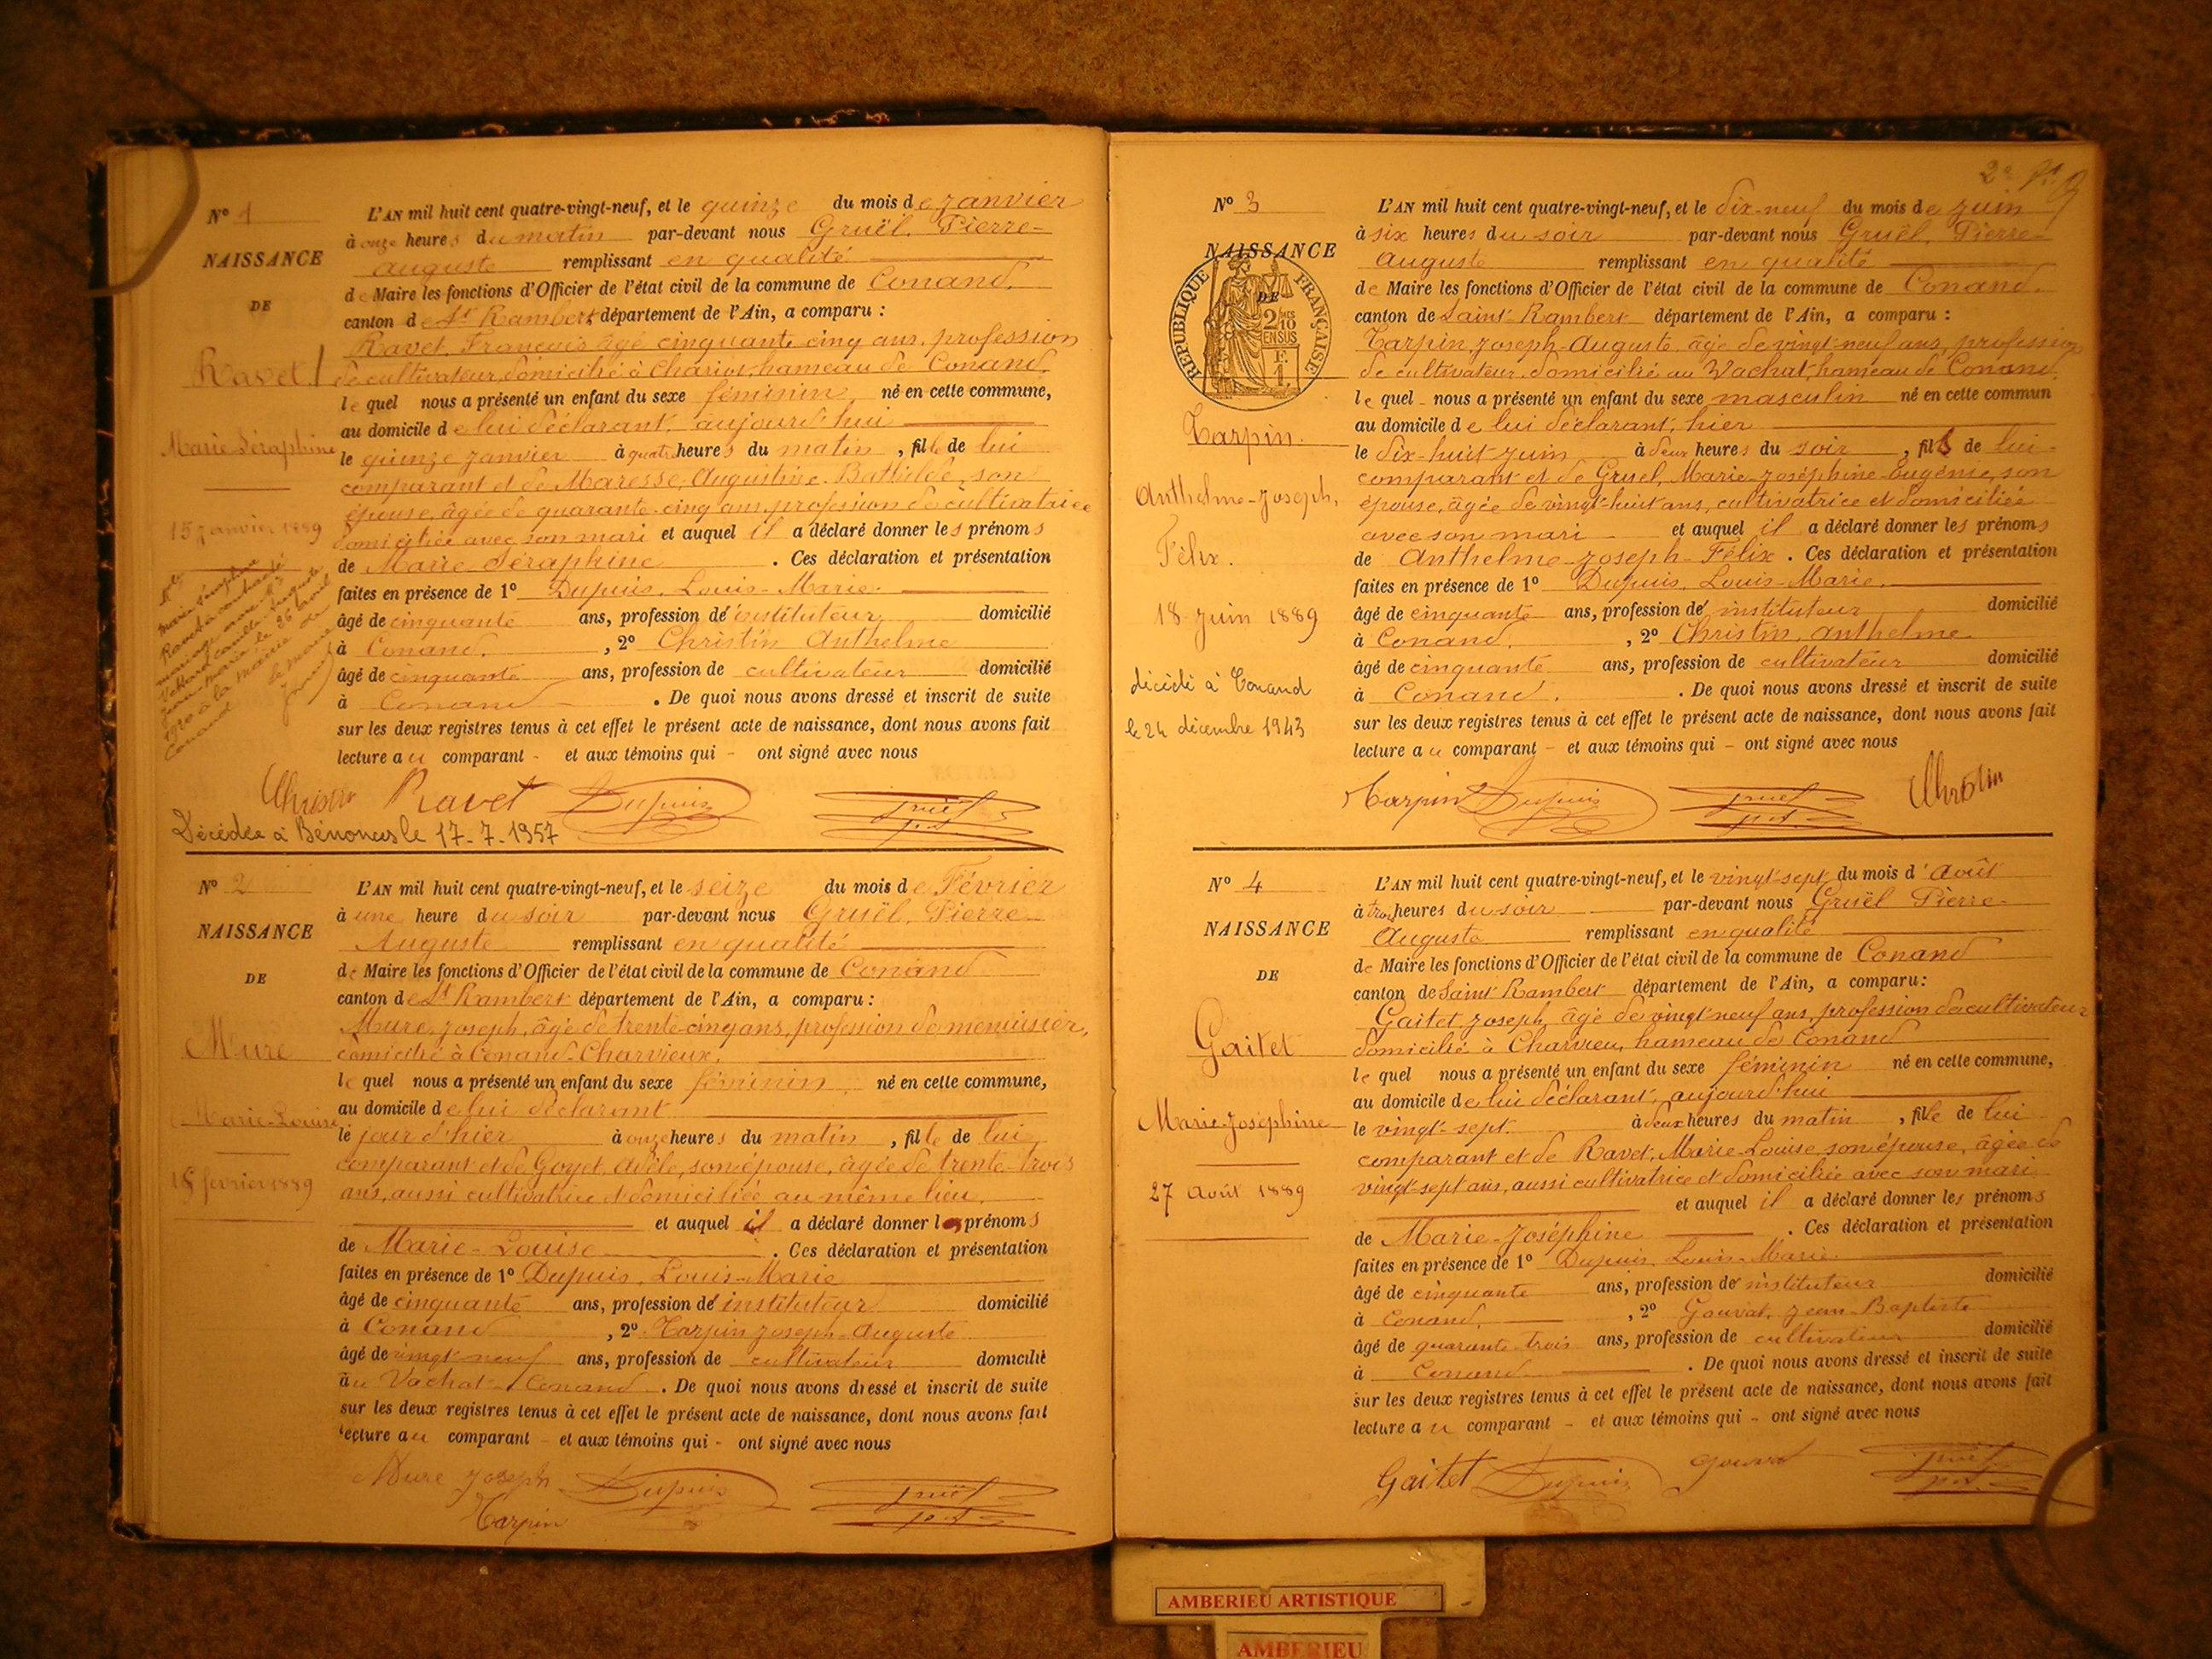 N° 1
NAISSANCE
DE
Ravet
Marie Séraphine
15 janvier 1889
L'AN mil huit cent quatre-vingt-neuf, et le quinze du mois de janvier
à onze heures du matin par-devant nous Gruël, Pierre-
Auguste remplissant en qualité
de Maire les fonctions d'Officier de l'état civil de la commune de Conand.
canton de St Rambert, département de l'Ain, a comparu :
Ravet, François âgé cinquante-cinq ans, profession
de cultivateur, domicilié à Charioz, hameau de Conand.
lequel nous a présenté un enfant du sexe féminin, né en cette commune,
au domicile de lui déclarant, aujourd'hui
le quinze janvier à quatre heures du matin, fille de lui
comparant et de Maresse, Augustine Bathilde, son
épouse, âgée de quarante-cinq ans, profession de cultivatrice
domiciliée avec son mari et auquel il a déclaré donner les prénoms
de Marie Séraphine. Ces déclaration et présentation
faites en présence de 1° Dupuis, Louis-Marie
âgé de cinquante ans, profession d'instituteur domicilié
à Conand, 2° Christin Anthelme
âgé de cinquante ans, profession de cultivateur domicilié
à Conand. De quoi nous avons dressé et inscrit de suite
sur les deux registres tenus à cet effet le présent acte de naissance, dont nous avons fait
lecture au comparant - et aux témoins qui - ont signé avec nous
Christin Ravet Dupuis Gruël
Décédée à Bénonces le 17-7-1957
N° 2
NAISSANCE
DE
Mure
Marie-Louise
15 février 1889
L'AN mil huit cent quatre-vingt-neuf, et le seize du mois de Février
à une heure du soir par-devant nous Gruël, Pierre
Auguste remplissant en qualité
de Maire les fonctions d'Officier de l'état civil de la commune de Conand
canton de St Rambert département de l'Ain, a comparu :
Mure, Joseph, âgé de trente-cinq ans, profession de menuisier,
domicilié à Conand-Charvieux.
lequel nous a présenté un enfant du sexe féminin, né en cette commune,
au domicile de lui déclarant
le jour d'hier à onze heures du matin, fille de lui
comparant et de Goyet, Adèle, son épouse, âgée de trente-trois
ans, aussi cultivatrice et domiciliée au même lieu.
et auquel il a déclaré donner les prénoms
de Marie-Louise. Ces déclaration et présentation
faites en présence de 1° Dupuis, Louis-Marie
âgé de cinquante ans, profession d'instituteur domicilié
à Conand, 2° Tarpin Joseph-Auguste
âgé de vingt-neuf ans, profession de cultivateur domicilié
au Vachat-Conand. De quoi nous avons dressé et inscrit de suite
sur les deux registres tenus à cet effet le présent acte de naissance, dont nous avons fait
lecture au comparant - et aux témoins qui - ont signé avec nous
Mure Joseph Dupuis Gruël
Tarpin
N° 3
NAISSANCE
DE
RÉPUBLIQUE FRANÇAISE
Tarpin.
Anthelme-Joseph,
Félix.
18 Juin 1889
décédé à Conand
le 24 décembre 1943
L'AN mil huit cent quatre-vingt-neuf, et le dix-neuf du mois de juin
à six heures du soir par-devant nous Gruël, Pierre-
Auguste remplissant en qualité
de Maire les fonctions d'Officier de l'état civil de la commune de Conand.
canton de Saint Rambert département de l'Ain, a comparu :
Tarpin, Joseph-Auguste, âgé de vingt-neuf ans, profession
de cultivateur domicilié au Vachat, hameau de Conand.
lequel nous a présenté un enfant du sexe masculin né en cette commun
au domicile de lui déclarant, hier
le dix-huit juin à deux heures du soir, fils de lui
comparant et de Gruel, Marie-Joséphine-Eugénie, son
épouse, âgée de vingt-huit ans, cultivatrice et domiciliée
avec son mari et auquel il a déclaré donner les prénoms
de Anthelme-Joseph-Félix. Ces déclaration et présentation
faites en présence de 1° Dupuis, Louis-Marie.
âgé de cinquante ans, profession d'instituteur domicilié
à Conand, 2° Christin, Anthelme
âgé de cinquante ans, profession de cultivateur domicilié
à Conand. De quoi nous avons dressé et inscrit de suite
sur les deux registres tenus à cet effet le présent acte de naissance, dont nous avons fait
lecture au comparant - et aux témoins qui - ont signé avec nous
Tarpin Dupuis Gruël Christin
N° 4
NAISSANCE
DE
Gaitet
Marie-Joséphine
27 Août 1889
L'AN mil huit cent quatre-vingt-neuf, et le vingt-sept du mois d'Août
à trois heures du soir par-devant nous Gruël Pierre-
Auguste remplissant en qualité
de Maire les fonctions d'Officier de l'état civil de la commune de Conand
canton de Saint Rambert département de l'Ain, a comparu :
Gaitet, Joseph, âgé de vingt-neuf ans, profession de cultivateur
domicilié à Charvieu, hameau de Conand
lequel nous a présenté un enfant du sexe féminin né en cette commune,
au domicile de lui déclarant, aujourd'hui
le vingt-sept à deux heures du matin, fille de lui
comparant et de Ravet, Marie-Louise son épouse, âgée de
vingt-sept ans, aussi cultivatrice et domiciliée avec son mari
et auquel il a déclaré donner les prénoms
de Marie-Joséphine. Ces déclaration et présentation
faites en présence de 1° Dupuis, Louis-Marie
âgé de cinquante ans, profession d'instituteur domicilié
à Conand, 2° Gouvat, Jean-Baptiste
âgé de quarante-trois ans, profession de cultivateur domicilié
à Conand. De quoi nous avons dressé et inscrit de suite
sur les deux registres tenus à cet effet le présent acte de naissance, dont nous avons fait
lecture au comparant - et aux témoins qui - ont signé avec nous
Gaitet Dupuis Gouvat Gruël
AMBERIEU ARTISTIQUE
AMBERIEU